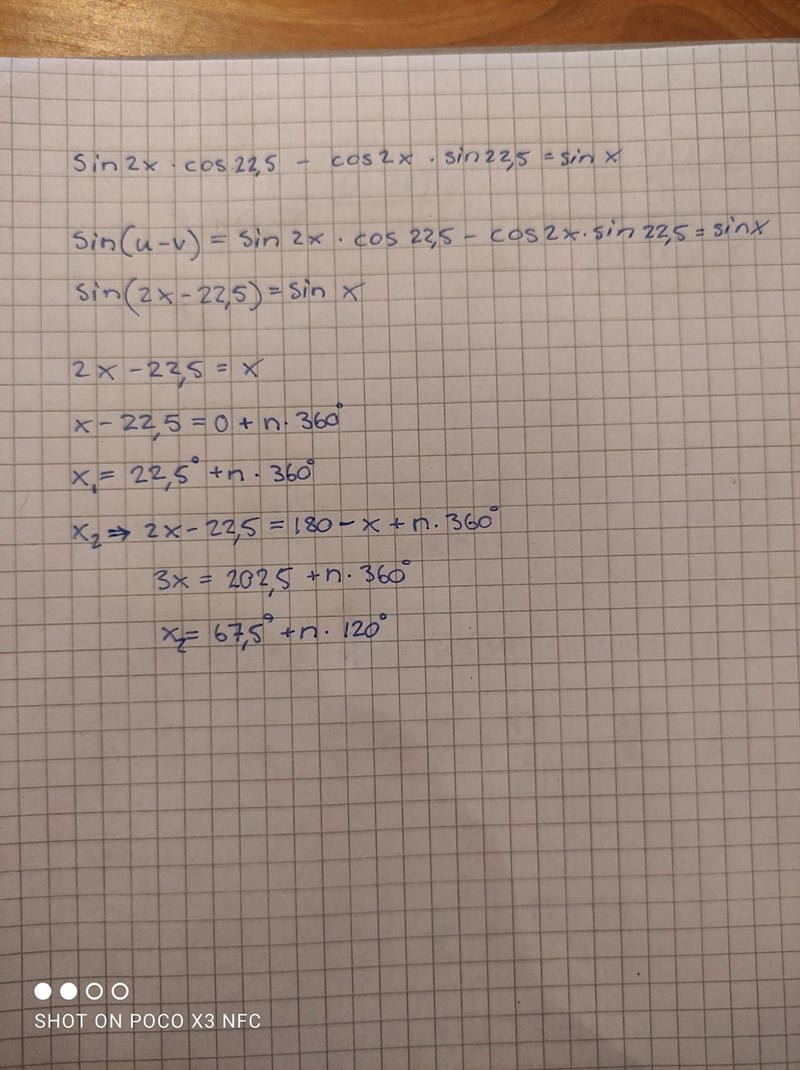 sin 2x · cos 22,5 - cos 2x · sin 22,5 = sin x
sin(u-v) = sin 2x · cos 22,5 - cos 2x · sin 22,5 = sin x
sin(2x - 22,5) = sin x
2x - 22,5 = x
x - 22,5 = 0 + n · 360°
x₁ = 22,5° + n · 360°
x₂ ⇒ 2x - 22,5 = 180 - x + n · 360°
3x = 202,5 + n · 360°
x₂ = 67,5° + n · 120°
SHOT ON POCO X3 NFC